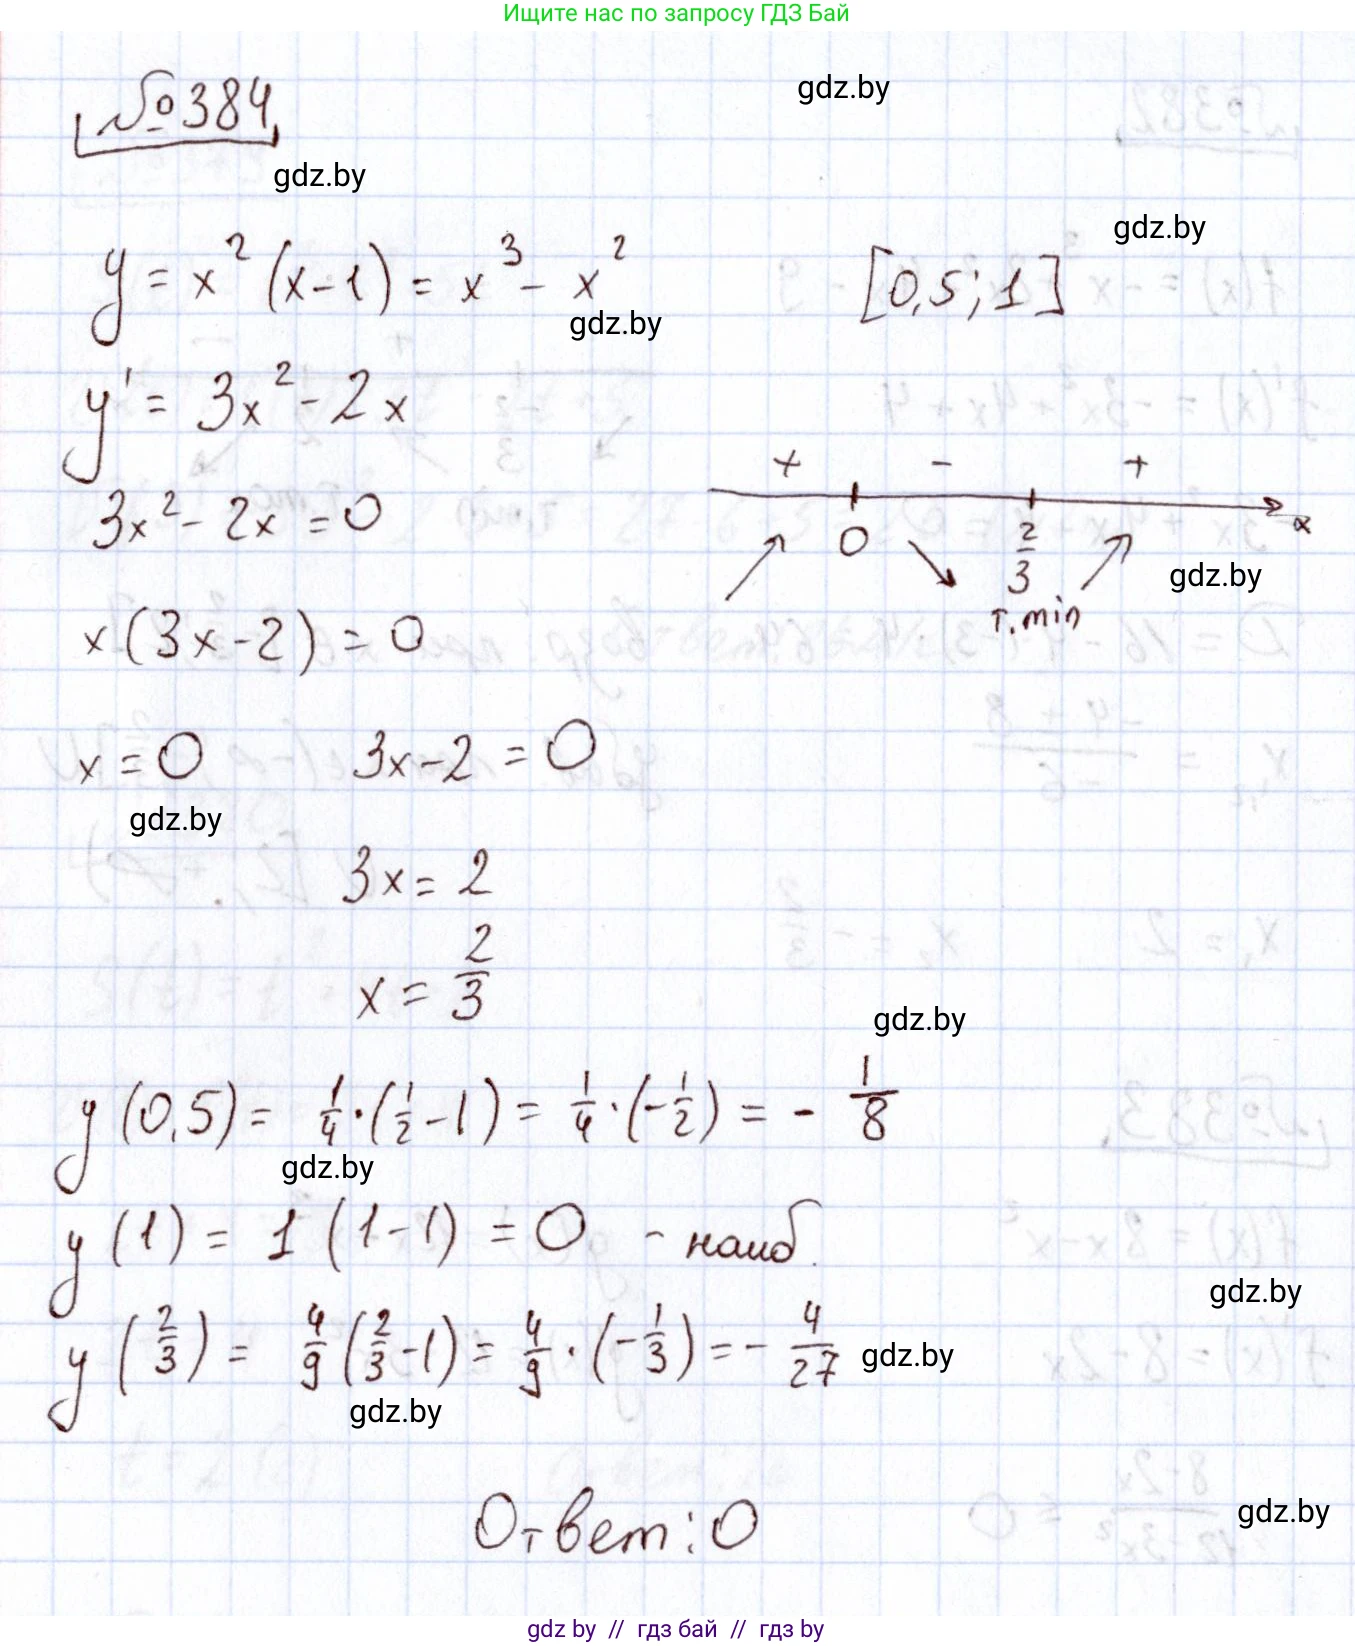 Ищите нас по запросу ГДЗ Бай
№384
gdz.by
gdz.by
gdz.by
y = x² (x-1) = x³ - x²
[0,5; 1]
gdz.by
y' = 3x² - 2x
3x² - 2x = 0
+ - +
0 2/3 x
т. min
gdz.by
x(3x-2) = 0
x = 0 3x-2 = 0
gdz.by
3x = 2
x = 2/3
gdz.by
y(0,5) = 1/4·(1/2-1) = 1/4·(-1/2) = - 1/8
gdz.by
y(1) = 1(1-1) = 0 - наиб.
gdz.by
y(2/3) = 4/9(2/3-1) = 4/9·(-1/3) = - 4/27
gdz.by
gdz.by
Ответ: 0
gdz.by
gdz.by // гдз бай // гдз by